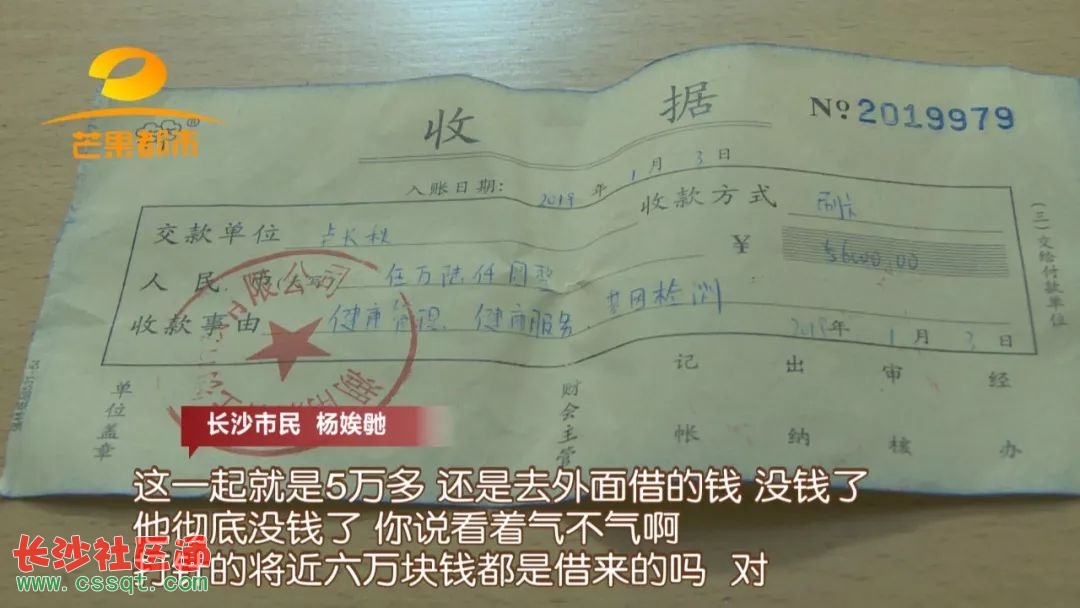 芒果都市®
收 据 Nº 2019979
入账日期: 2019 年 1 月 3 日
交款单位 卢长秋 收款方式 刷卡
人民币 伍万陆仟圆整 ¥ 56000.00
收款事由 健康管理、健康服务、基因检测
2019年 1 月 3 日
(三)交给付款单位
单位盖章 财会主管 记帐 出纳 审核 经办
限公司
长沙市民 杨娭毑
这一起就是5万多 还是去外面借的钱 没钱了
他彻底没钱了 你说看着气不气啊
的将近六万块钱都是借来的吗 对
长沙社区通
www.cssqt.com